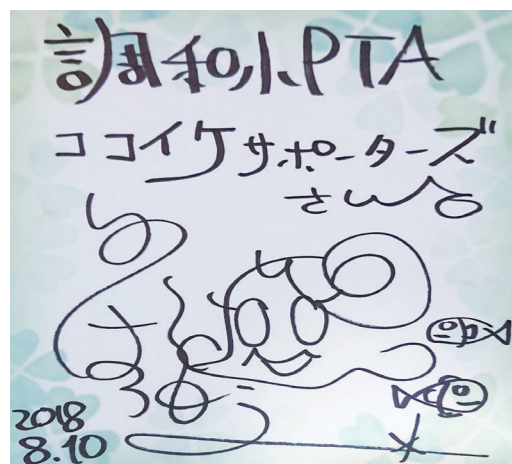 調和小PTA
ココイケサポーターズ
さんへ
2018
8.10